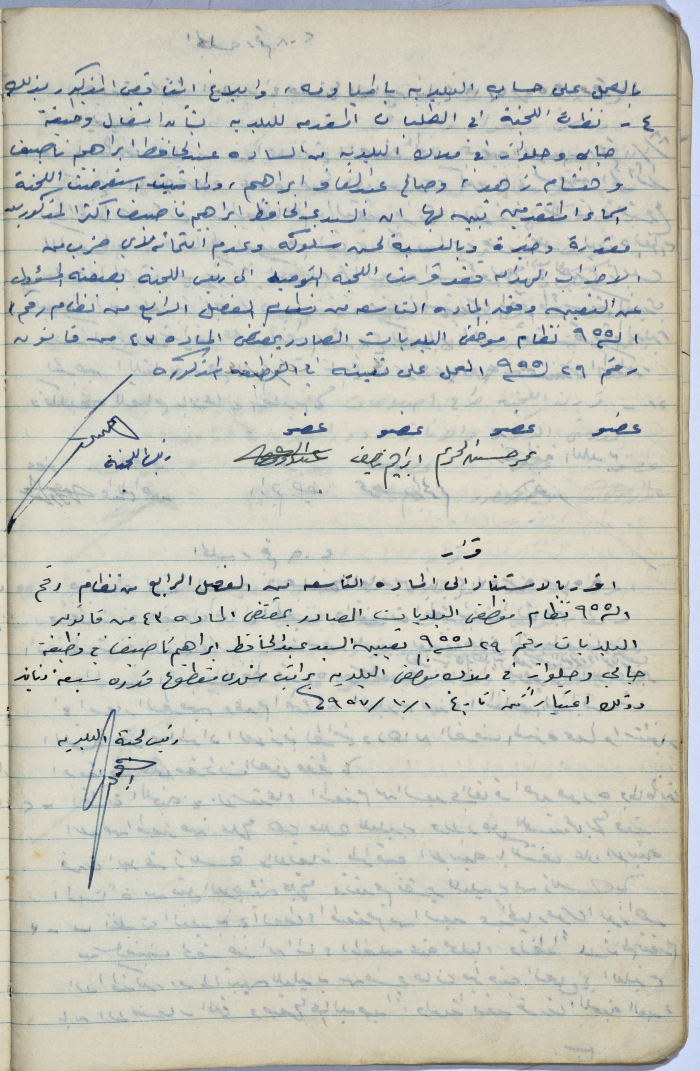 بالعمل على حساب البلدية وابلاغ المذكور بذلك
٤ - نظرت اللجنة في الطلبات المقدمه للبلدية بشأن اشغال وظيفة
جابي وحلواز في ملاك البلدية من الساده عبدالحافظ ابراهيم ناصيف
وهشام زهده وصالح عبدالغافر ابراهيم، ولما استعرضت اللجنة
اسماء المتقدمين تبين لها ان السيد عبدالحافظ ابراهيم ناصيف اكثر المذكورين
مقدرة وخبرة وبالنسبة لحسن سلوكه وعدم انتمائه لاي حزب من
الاحزاب الهدامه فقد قررت اللجنة التوصيه الى رئيس اللجنة بصفته المسؤول
عن التعيين وفق الماده التاسعه من نظام الفصل الرابع من نظام رقم ١
لسنة ٩٥٥ نظام موظفي البلديات الصادر بمقتضى الماده ٤٣ من قانون
رقم ٢٩ لسنة ٩٥٥ العمل على تعيينه في الوظيفه المذكوره
عضو عضو عضو عضو
رئيس اللجنة
قرار
اقرر بالاستناد الى الماده التاسعه من الفصل الرابع من نظام رقم
لسنة ٩٥٥ نظام موظفي البلديات الصادر بمقتضى الماده ٤٣ من قانون
البلديات رقم ٢٩ لسنة ٩٥٥ تعيين السيد عبدالحافظ ابراهيم ناصيف في وظيفة
جابي وحلواز في ملاك موظفي البلديه براتب شهري مقطوع قدره سبعة دنانير
وذلك اعتباراً من تاريخ ١/١٠/٩٥٧
رئيس لجنة البلديه